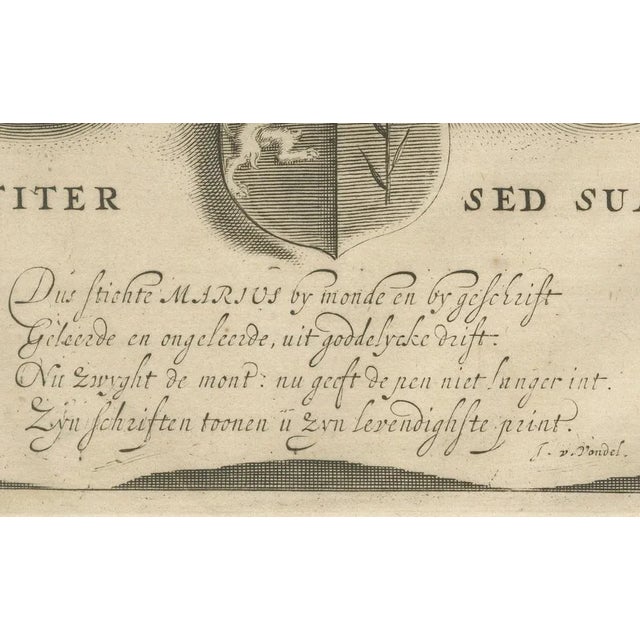 TITER SED SUA
Dus stichte MARIUS by monde en by geschrift
Geleerde en ongeleerde, uit goddelycke drift.
Nu zwyght de mont: nu geeft de pen niet langer int.
Zyn schriften toonen ü zyn levendighste print.
J. v. Vondel.